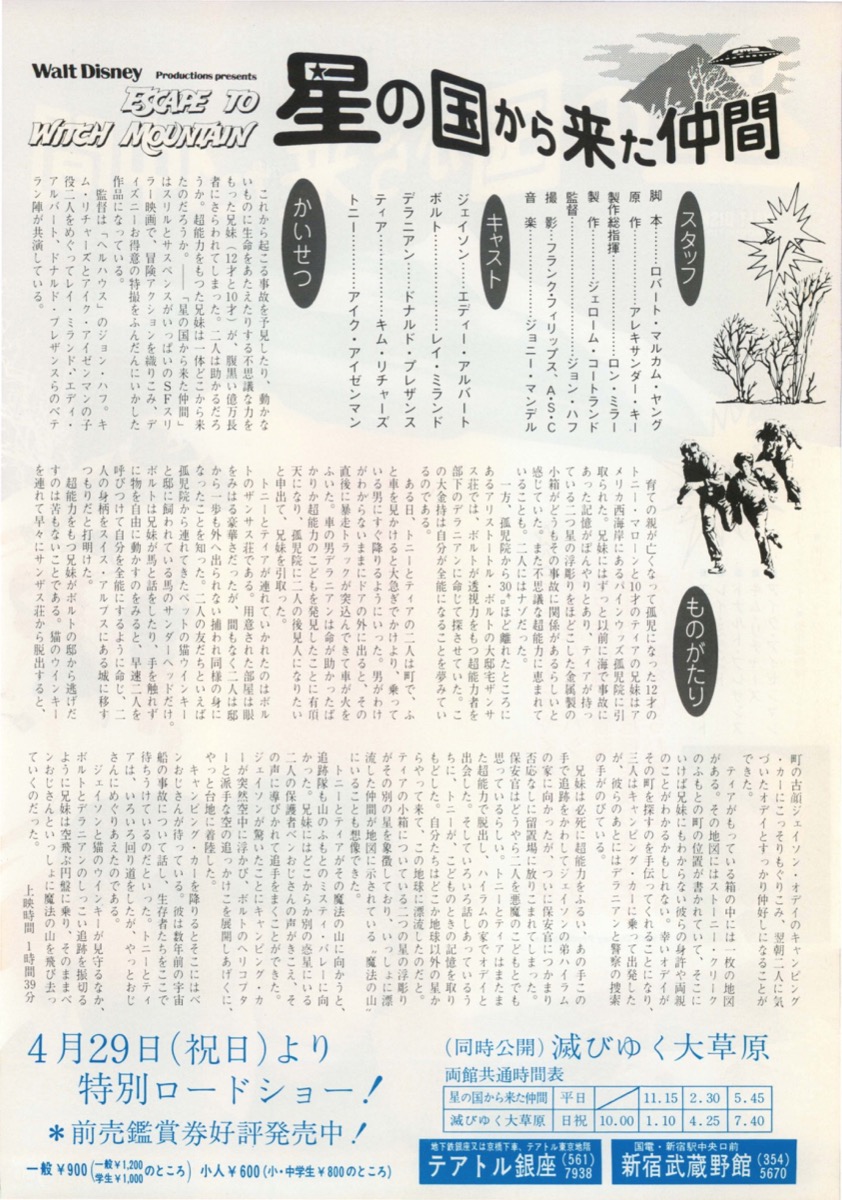 Walt Disney Productions presents
ESCAPE TO
WITCH MOUNTAIN
星の国から来た仲間
スタッフ
脚本…………ロバート・マルカム・ヤング
原作…………アレキサンダー・キー
製作総指揮…………ロン・ミラー
製作…………ジェローム・コートランド
監督…………ジョン・ハフ
撮影…フランク・フィリップス、A・S・C
音楽…………ジョニー・マンデル
キャスト
ジェイソン………エディー・アルバート
ボルト…………レイ・ミランド
デラニアン………ドナルド・プレザンス
ティア…………キム・リチャーズ
トニー…………アイク・アイゼンマン
かいせつ
これから起こる事故を予見したり、動かな
いものに生命をあたえたりする不思議な力を
もった兄妹(12才と10才)が、腹黒い億万長
者にさらわれてしまった。二人は助かるだろ
うか。超能力をもつた兄妹は一体どこから来
たのだろうか。――「星の国から来た仲間」
はスリルとサスペンスがいっぱいのSFスリ
ラー映画で、冒険アクションを織りこみ、デ
ィズニーお得意の特撮をふんだんにいかした
作品になっている。
監督は「ヘルハウス」のジョン・ハフ。キ
ム・リチャーズとアイク・アイゼンマンの子
役二人をめぐってレイ・ミランド、エディ・
アルバート、ドナルド・プレザンスらのベテ
ラン陣が共演している。
ものがたり
育ての親が亡くなって孤児になった12才の
トニー・マローンと10才のティアの兄妹はア
メリカ西海岸にあるパインウッズ孤児院に引
取られた。兄妹にはずっと以前に海で事故に
あった記憶がぼんやりとあり、ティアが持っ
ている二つ星の浮彫りをほどこした金属製の
小箱がどうもその事故に関係があるらしいと
感じていた。また不思議な超能力に恵まれて
いることも。二人にはナゾだった。
一方、孤児院から30㌔ほど離れたところに
あるアリストートル・ボルトの大邸宅ザンサ
ス荘では、ボルトが透視力をもつ超能力者を
部下のデラニアンに命じて探させていた。こ
の大金持は自分が全能になることを夢みてい
るのである。
ある日、トニーとティアの二人は町で、ふ
と車を見かけると大急ぎでかけより、乗って
いる男にすぐ降りるようにいった。男がわけ
がわからないままにドアの外に出ると、その
直後に暴走トラックが突込んできて車が火を
ふいた。車の男デラニアンは命が助かったば
かりか超能力のこどもを発見したことに有頂
天になり、孤児院に二人の後見人になりたい
と申出て、兄妹を引取った。
トニーとティアが連れていかれたのはボル
トのザンサス荘である。用意された部屋は眼
をみはる豪華さだったが、間もなく二人は邸
から一歩も外へ出られない捕われ同様の身に
なったことを知った。二人の友だちといえば
孤児院から連れてきたペットの猫ウインキー
と邸に飼われている馬のサンダーヘッドだけ。
ボルトは兄妹が馬と話をしたり、手を触れず
に物を自由に動かすのをみると、早速二人を
呼びつけて自分を全能にするように命じ、二
人の身柄をスイス・アルプスにある城に移す
つもりだと打明けた。
超能力をもつ兄妹がボルトの邸から逃げだ
すのは苦もないことである。猫のウインキー
を連れて早々にサンザス荘から脱出すると、
町の古顔ジェイソン・オデイのキャンピング
・カーにこっそりもぐりこみ、翌朝二人に気
づいたオデイとすっかり仲好しになることが
できた。
ティアがもっている箱の中には一枚の地図
がある。その地図にはストーニー・クリーク
のふもとの町の位置が書かれていて、そこに
いけば兄妹にもわからない彼らの身許や両親
のことがわかるかもしれない。幸いオデイが
その町を探すのを手伝ってくれることになり、
三人はキャンピング・カーに乗って出発した
が、彼らのあとにはデラニアンと警察の捜索
の手がのびている。
兄妹は必死に超能力をふるい、あの手この
手で追跡をかわしてジェイソンの弟ハイラム
の家に向かったが、ついに保安官につかまり
否応なしに留置場に放りこまれてしまった。
保安官はどうやら二人を悪魔のこどもとでも
思っているらしい。トニーとティアはまたま
た超能力で脱出し、ハイラムの家でオデイと
出会した。そしていろいろ話しあっているう
ちに、トニーが、こどものときの記憶を取り
もどした。自分たちはどこか地球以外の星か
らやって来て、この地球に漂流したのだと。
ティアの小箱についている二つの星の浮彫り
がその別の星を象徴しており、いっしょに漂
流した仲間が地図に示されている〝魔法の山〟
にいることも想像できた。
トニーとティアがその魔法の山に向かうと、
追跡隊も山のふもとのミスティ・バレーに向
かった。兄妹にはどこからか別の惑星にいる
二人の保護者ベンおじさんの声がきこえ、そ
の声に導びかれて追手をまくことができた。
ジェイソンが驚いたことにキャンピング・カ
ーが突然空中に浮かび、ボルトのヘリコプタ
ーと派手な空の追っかけこを展開しあげくに、
やっと台地に着陸した。
キャンピング・カーを降りるとそこにはベ
ンおじさんが待っている。彼は数年前の宇宙
船の事故について話し、生存者たちをここで
待ちうけているのだといった。トニーとティ
アは、いろいろ回り道をしたが、やっとおじ
さんにめぐりあえたのである。
ジェイソンと猫のウインキーが見守るなか、
ボルトとデラニアンのしっこい追跡を振切る
ように兄妹は空飛ぶ円盤に乗り、そのままベ
ンおじさんといっしょに魔法の山を飛び去っ
ていくのだった。
上映時間 1時間39分
4月29日(祝日)より
特別ロードショー!
*前売鑑賞券好評発売中!
一般￥900(一般￥1,200 学生￥1,000のところ) 小人￥600(小・中学生￥800のところ)
(同時公開)滅びゆく大草原
両館共通時間表
星の国から来た仲間 平日 11.15 2.30 5.45
滅びゆく大草原 日祝 10.00 1.10 4.25 7.40
地下鉄銀座又は京橋下車、テアトル東京地階
テアトル銀座(561)7938
国電・新宿駅中央口前
新宿武蔵野館(354)5670